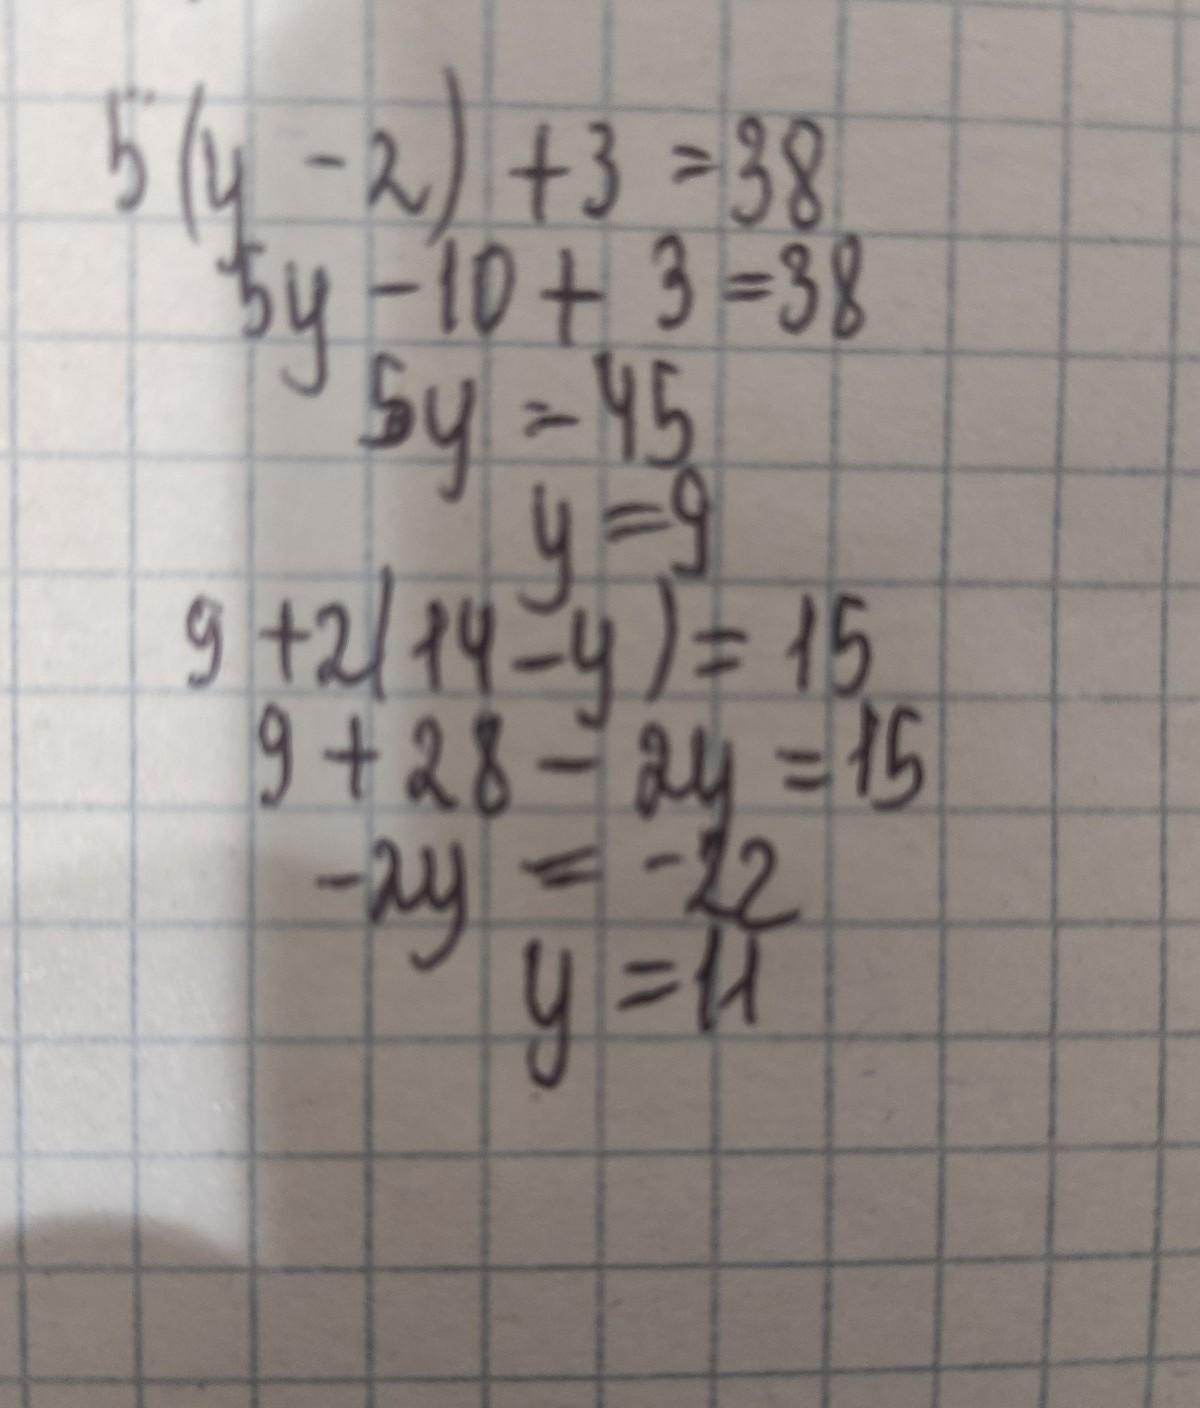 5(y - 2) + 3 = 38
5y - 10 + 3 = 38
5y = 45
y = 9
9 + 2(14 - y) = 15
9 + 28 - 2y = 15
-2y = -22
y = 11